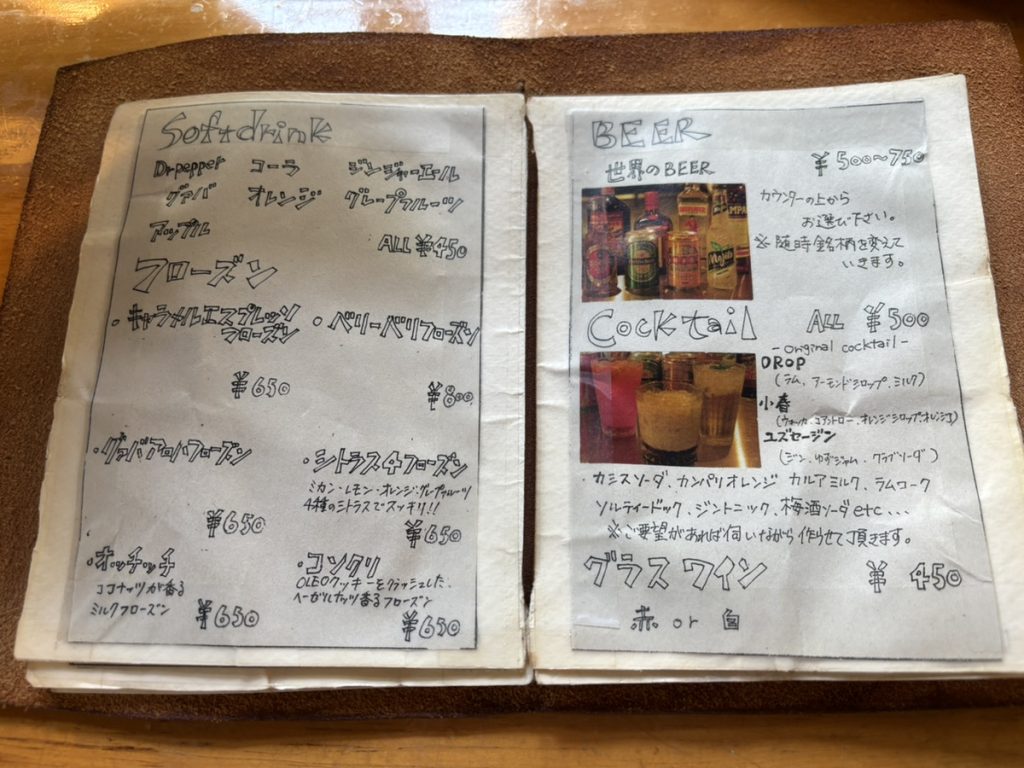 Softdrink
Dr.pepper コーラ ジンジャーエール
グァバ オレンジ グレープフルーツ
アップル
ALL ¥450
フローズン
・キャラメルエスプレッソ
フローズン
・ベリーベリフローズン
¥650
¥800
・グァバアロハフローズン
・シトラス4フローズン
ミカン・レモン・オレンジ・グレープフルーツ
4種のシトラスでスッキリ!!
¥650
¥650
・ホッチッチ
ココナッツが香る
ミルクフローズン
¥650
・コソクリ
OLEOクッキーをクラッシュした、
ヘーゼルナッツ香るフローズン
¥650
BEER
世界のBEER
¥500〜750
カウンターの上から
お選び下さい。
※随時銘柄を変えて
いきます。
Cocktail ALL ¥500
- original cocktail -
DROP
(ラム、アーモンドシロップ、ミルク)
小春
(ウォッカ、コアントロー、オレンジシロップ、オレンジ)
ユズセージン
(ジン、ゆずジャム、クラブソーダ)
・カシスソーダ、カンパリオレンジ カルアミルク、ラムコーク
ソルティードック、ジントニック、梅酒ソーダetc...
※ご要望があれば伺いながら作らせて頂きます。
グラスワイン ¥450
赤 or 白